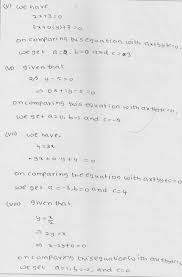 (v) we have
2x+3=0
2x+0(y)+3=0
on comparing this equation with ax+by+c=0,
we get a=2, b=0 and c=3
given that
y-5=0
⇒ 0x+1y-5=0
on comparing this equation with ax+by+c=0,
we get a=0, b=1 and c=-5
(vii) we have,
y=3x
-3x+0+y=0
on comparing this equation with ax+by+c=0
we get a=-3, b=0 and c=4
(viii) given that
y=x/2
⇒ 2y=x
⇒ x-2y+0=0
on comparing this equation with ax+by+c=0
we get a=1, b=-2, and c=0